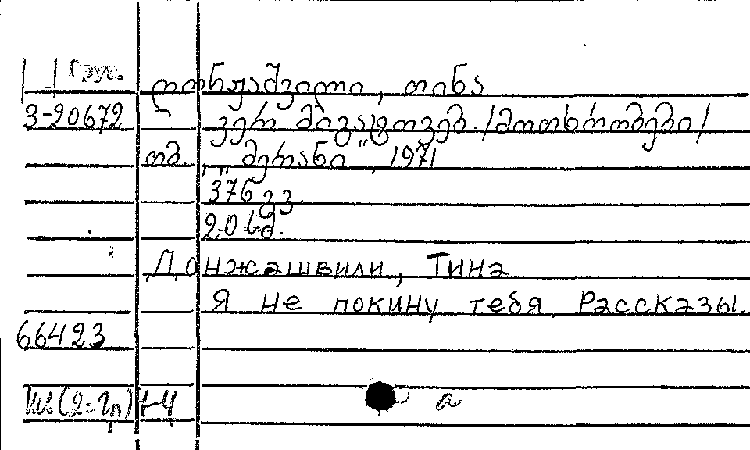 Груз.
დონჟაშვილი, თინა
3-20672 ვერ მიგატოვებ. /მოთხრობები/
თბ., „მერანი", 1971
376 გვ.
20 სმ.
Донжашвили, Тина
Я не покину тебя. Рассказы.
66423